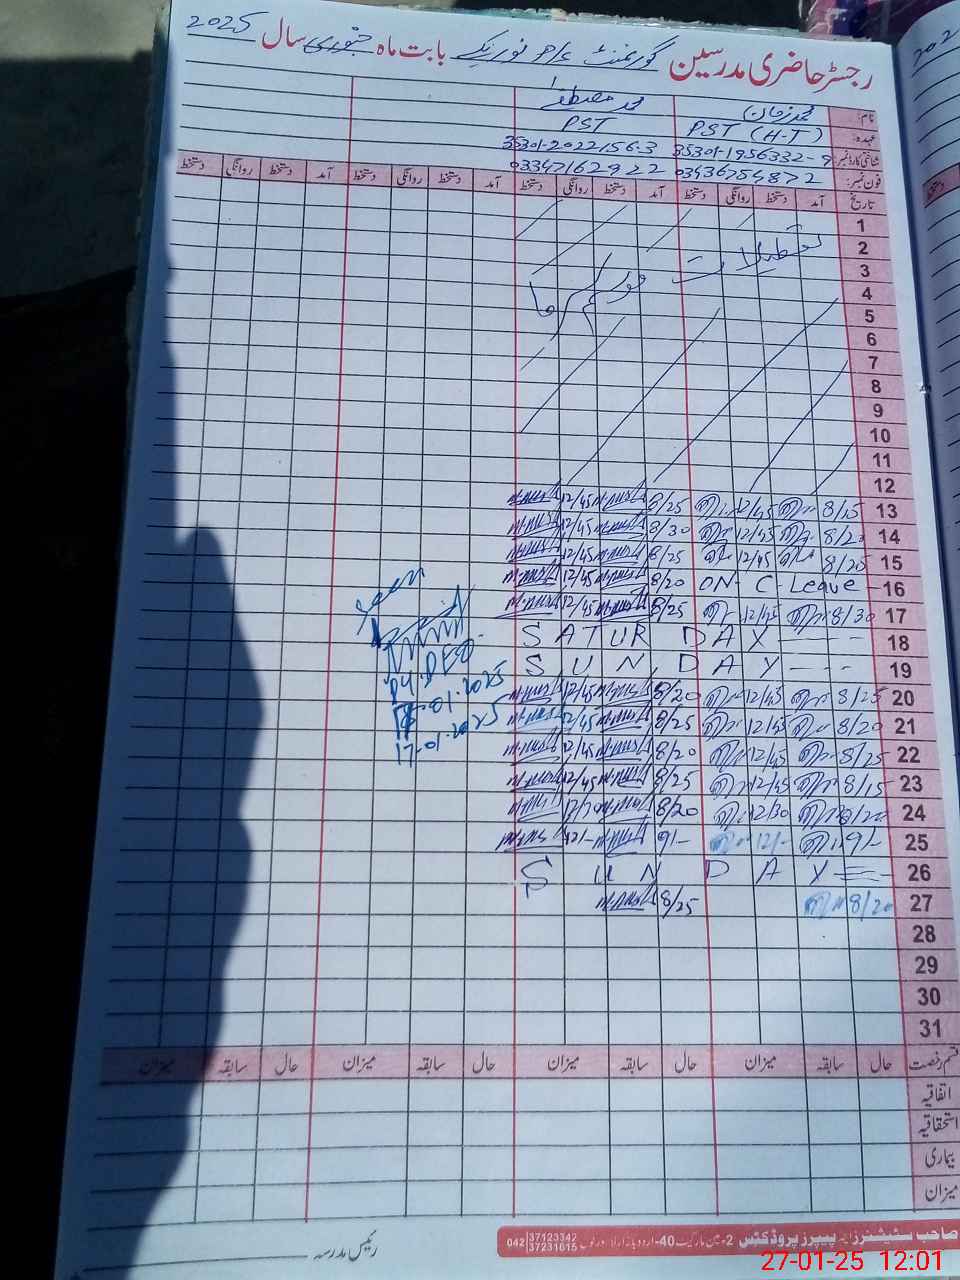 رجسٹر حاضری مدرسین گورنمنٹ بابت ماہ جنوری سال 2025
نام: محمد زمان محمد مصطفیٰ
عہدہ: PST (H-T) PST
شناختی کارڈ نمبر: 35301-1956332-9 35301-2022156-3
فون نمبر: 03436754872 03347162922
تاریخ آمد دستخط روانگی دستخط آمد دستخط روانگی دستخط آمد دستخط روانگی دستخط آمد دستخط روانگی دستخط
1
2 تعطیلات موسم سرما
3
4
5
6
7
8
9
10
11
12
13 8/15 12/45 8/25 12/45
14 8/20 12/45 8/30 12/45
15 8/25 12/45 8/25 12/45
16 ON C Leave 8/20 12/45
17 8/30 12/45 8/25 12/45
18 SATURDAY
19 SUNDAY
20 8/25 12/45 8/20 12/45
21 8/20 12/45 8/25 12/45
22 8/25 12/45 8/20 12/45
23 8/15 12/45 8/25 12/45
24 8/20 12/30 8/20
25 9/- 12/- 9/- 12/-
26 SUNDAY
27 8/20 8/25
28
29
30
31
Seen
Dy.DEO
17-01-2025
قسم رخصت حال سابقہ میزان حال سابقہ میزان حال سابقہ میزان حال سابقہ میزان
اتفاقیہ
استحقاقیہ
بیماری
میزان
رئیس مدرسہ
صاحب سٹیشنرز اینڈ پیپرز پروڈکٹس 2-مین مارکیٹ 40-اردو بازار لاہور فون 042 37123347 37231015
27-01-25 12:01